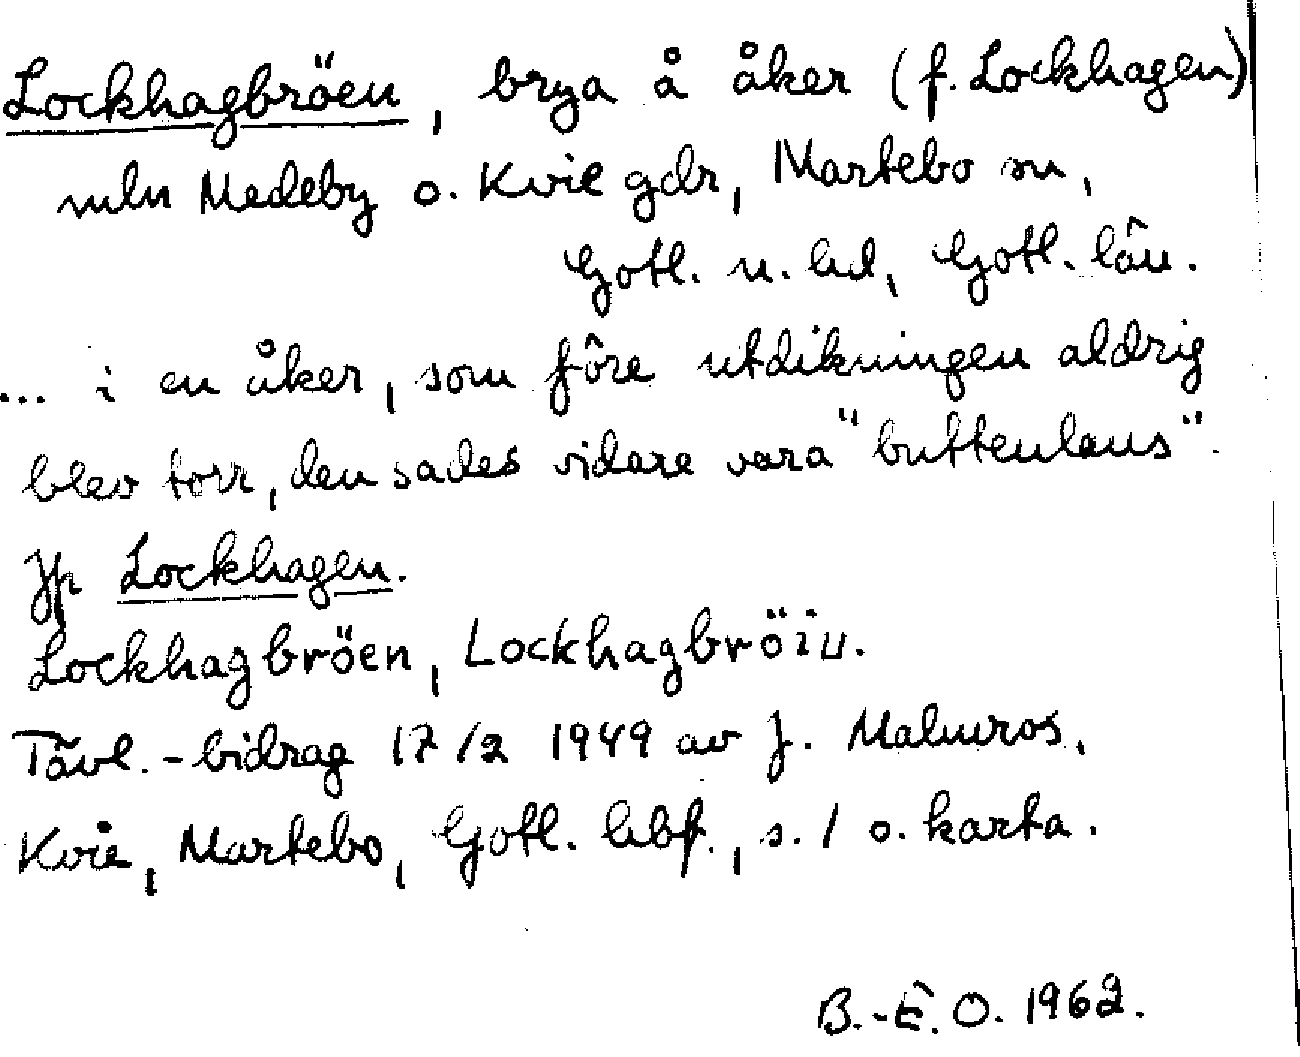 Lockhagbröen, brya å åker (f. Lockhagen)
mln Medeby o. Kvie gdr, Martebo sn,
Gotl. n. hd, Gotl. län.
... i en åker, som före utdikningen aldrig
blev torr, den sades vidare vara "buttenlaus".
Jfr Lockhagen.
Lockhagbröen, Lockhagbröiu.
Tävl.-bidrag 17/2 1949 av J. Malmros,
Kvie, Martebo, Gotl. hbf., s. 1 o. karta.
B.-E. O. 1962.